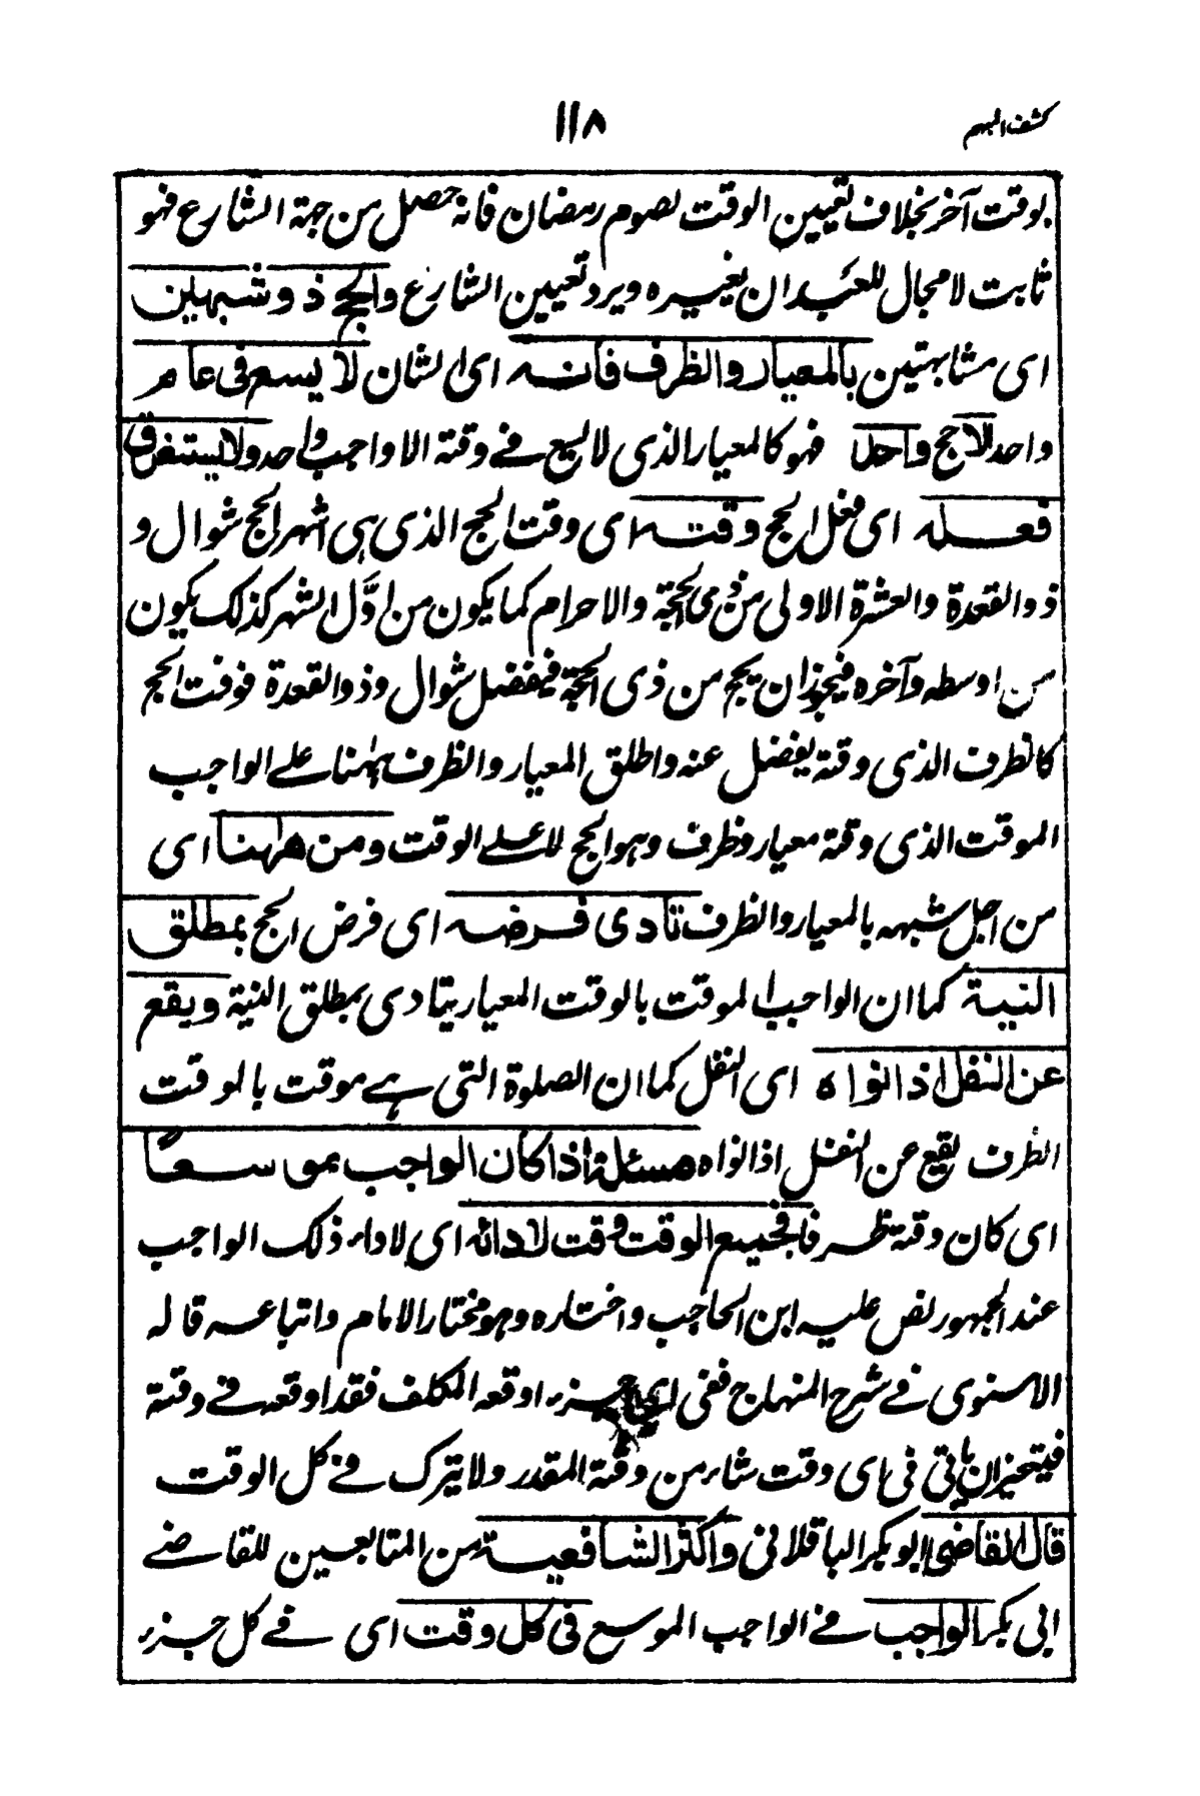 كشف المبهم
١١٨
بوقت آخر بخلاف تعيين الوقت لصوم رمضان فانه حصل من جهة الشارع فهو
ثابت لا مجال للعبد ان يغيره ويرد تعيين الشارع والحج ذو شبهين
اى مشابهتين بالمعيار والظرف فانه اى الشان لا يسع فى عام
واحد الا حج واحد فهو كالمعيار الذى لا يسع فے وقته الا واجب واحد ولا يستغرق
فعله اى فعل الحج وقته اى وقت الحج الذى هى اشهر الحج شوال و
ذو القعدة والعشرة الاولى من ذى الحجة والاحرام كما يكون من اوَّل الشهر كذلك يكون
من اوسطه وآخره فيجوز ان يحج من ذى الحجة فيفضل شوال وذو القعدة فوقت الحج
كالظرف الذى وقته يفضل عنه واطلق المعيار والظرف ههنا علے الواجب
الموقت الذى وقته معيار وظرف وهو الحج لا علے الوقت ومن ههنا اى
من اجل شبهه بالمعيار والظرف تادى فرضه اى فرض الحج بمطلق
النية كما ان الواجب الموقت بالوقت المعيار يتادى بمطلق النية ويقع
عن النفل اذا نواه اى النفل كما ان الصلوة التى هے موقت بالوقت
الظرف يقع عن النفل اذا نواه مسئلة اذا كان الواجب موسعًا
اى كان وقته ظرفا فجميع الوقت وقت لادائه اى لاداء ذلك الواجب
عند الجمهور نص عليه ابن الحاجب واختاره وهو مختار الامام واتباعه قاله
الاسنوى فے شرح المنهاج ففى اى جزء اوقعه المكلف فقد اوقعه فے وقته
فيتخير ان ياتى فى اى وقت شاء من وقته المقدر ولا يترك فے كل الوقت
قال القاضى ابو بكر الباقلانى واكثر الشافعية من المتابعين للقاضے
ابى بكر الواجب فے الواجب الموسع فى كل وقت اى فے كل جزء